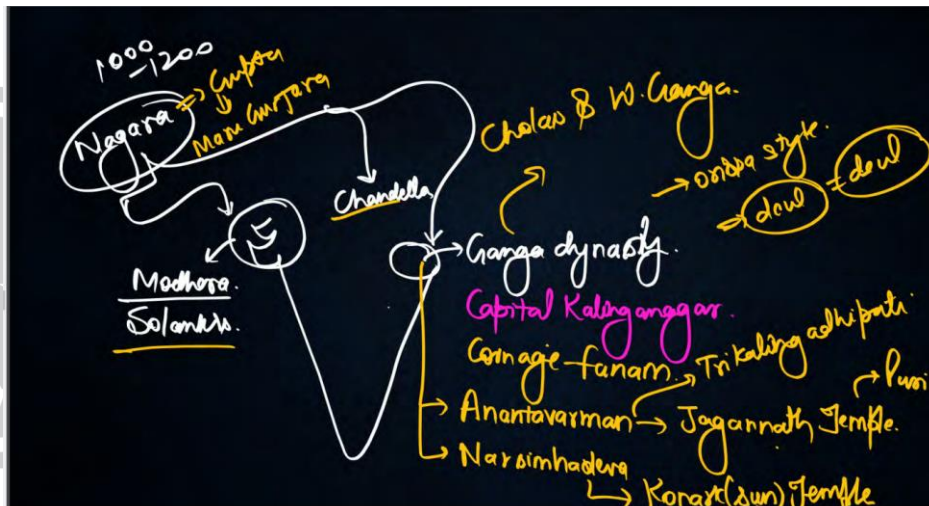 1000
-1200
Nagara => Gupta
Maru Gurjara
Chandella
Modhera.
Solankis.
Cholas & W. Ganga.
→ orissa style.
deul = deul
Ganga dynasty.
Capital Kalinganggar.
Coinage - fanam.
Trikalingadhipati
Anantavarman → Jagannath Temple.
Puri
Narsimhadeva
Konark(sun) Temple